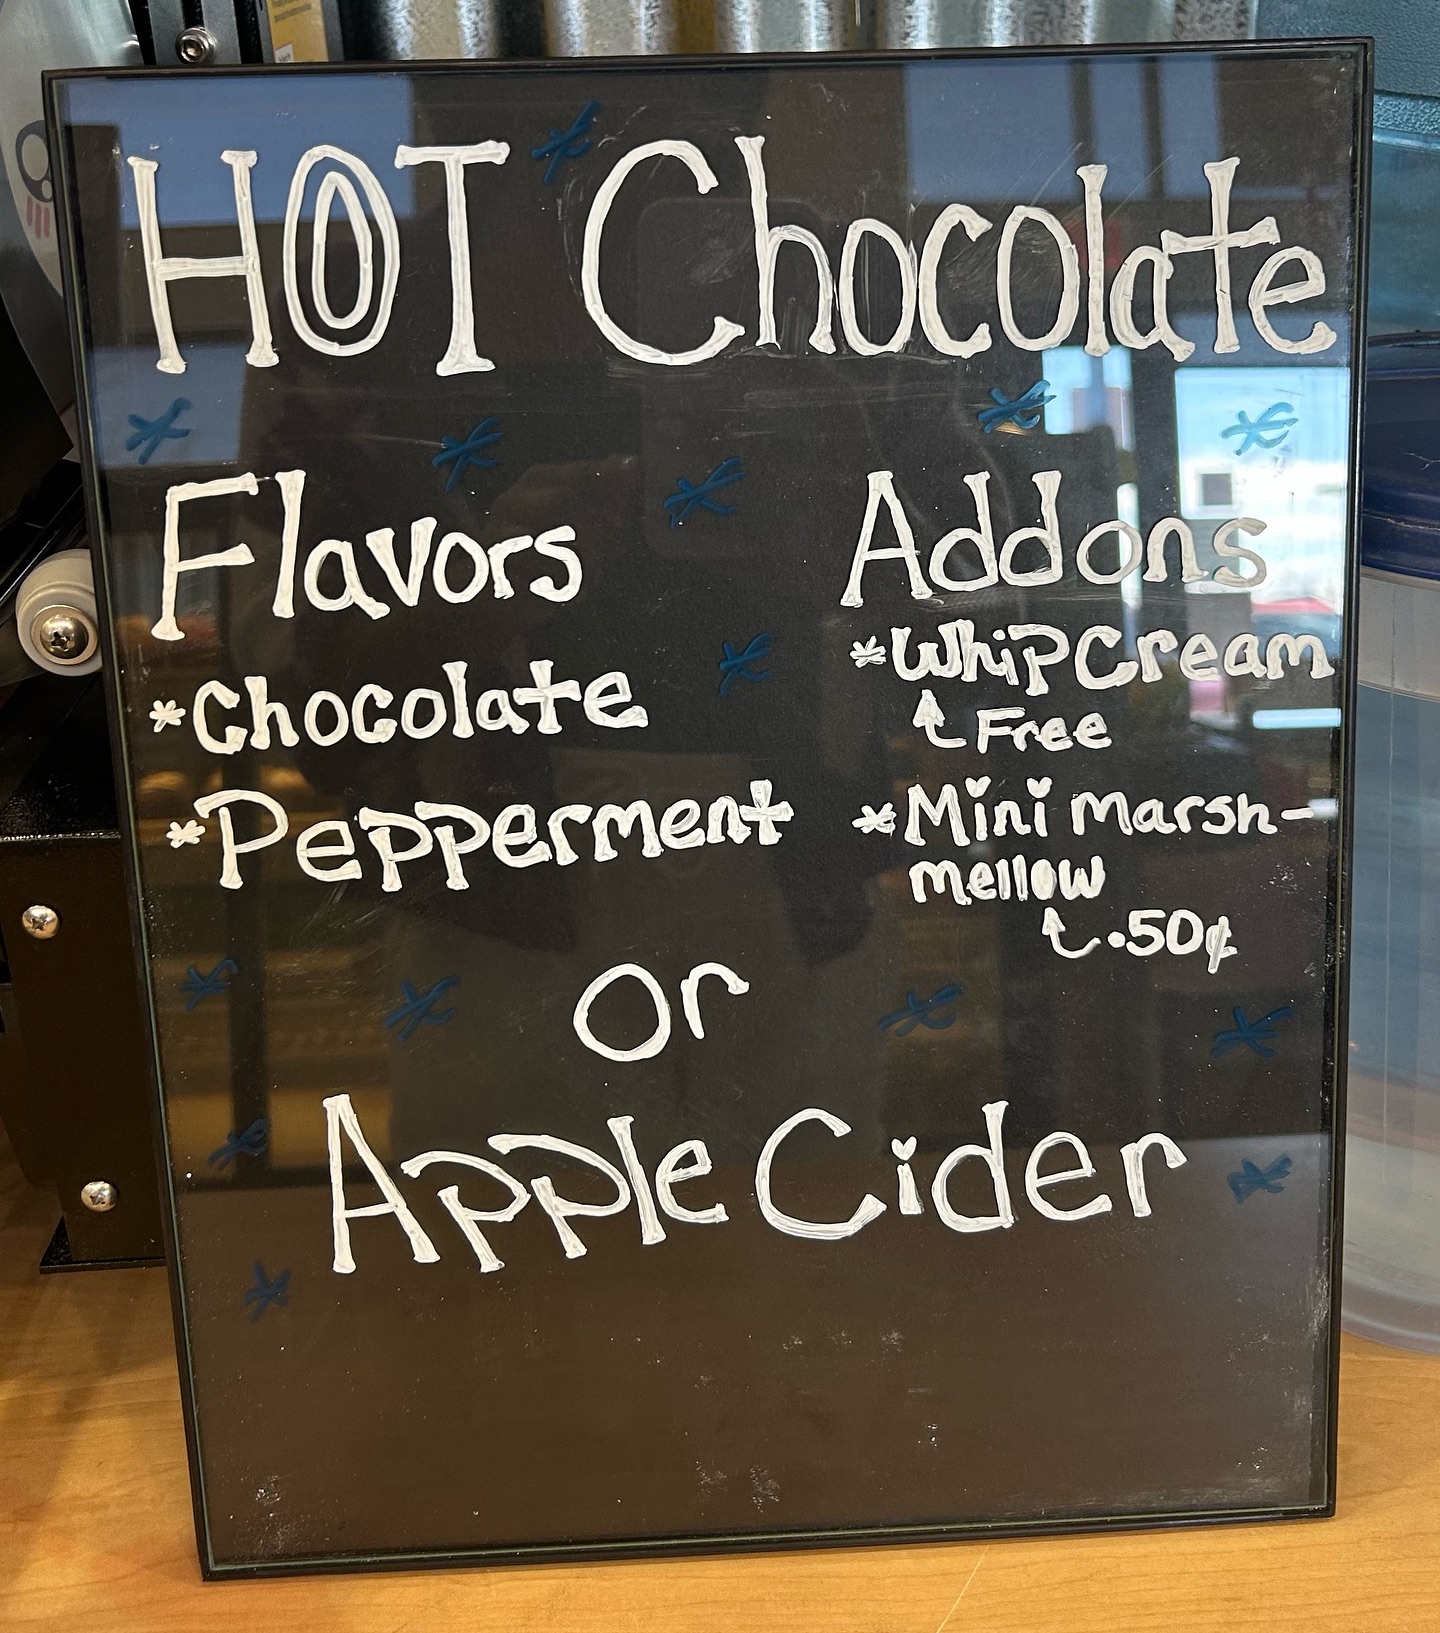 HOT Chocolate
Flavors
*Chocolate
*Pepperment
Addons
*Whip Cream
Free
*Mini Marsh-
mellow
.50¢
or
Apple Cider